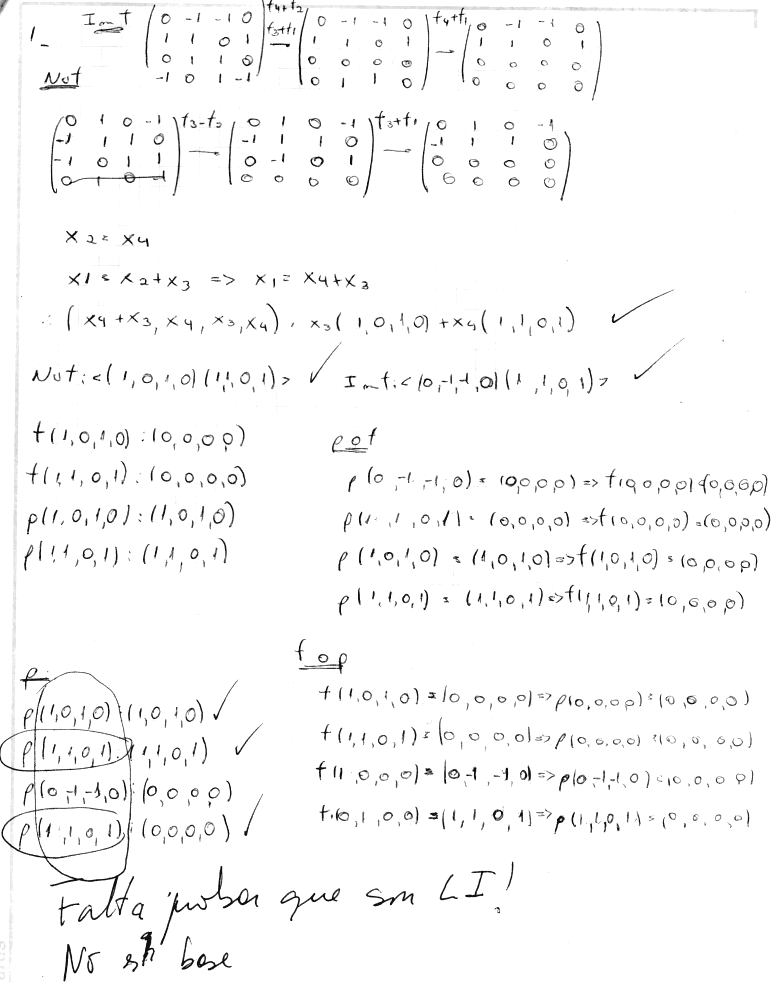 1_ Imt
0 -1 -1 0 f4+f2 0 -1 -1 0 f4+f1 0 -1 -1 0
1 1 0 1 f3+f1 1 1 0 1 1 1 0 1
0 1 1 0 0 0 0 0 0 0 0 0
-1 0 1 -1 0 1 1 0 0 0 0 0
Nut
0 1 0 -1 f3-f2 0 1 0 -1 f3+f1 0 1 0 -1
-1 1 1 0 -1 1 1 0 -1 1 1 0
-1 0 1 1 0 -1 0 1 0 0 0 0
0 1 0 -1 0 0 0 0 0 0 0 0
x2 = x4
x1 = x2+x3 => x1 = x4+x3
∴ (x4+x3, x4, x3, x4) = x3(1,0,1,0) + x4(1,1,0,1) ✓
Nut: <(1,0,1,0)(1,1,0,1)> ✓ Imt: <(0,-1,-1,0)(1,1,0,1)> ✓
t(1,0,1,0) = (0,0,0,0)
t(1,1,0,1) = (0,0,0,0)
p(1,0,1,0) = (1,0,1,0)
p(1,1,0,1) = (1,1,0,1)
pot
p(0,-1,-1,0) = (0,0,0,0) => t(0,0,0,0) = (0,0,0,0)
p(1,1,0,1) = (0,0,0,0) => t(0,0,0,0) = (0,0,0,0)
p(1,0,1,0) = (1,0,1,0) => t(1,0,1,0) = (0,0,0,0)
p(1,1,0,1) = (1,1,0,1) => t(1,1,0,1) = (0,0,0,0)
p
p(1,0,1,0) = (1,0,1,0) ✓
p(1,1,0,1) = (1,1,0,1) ✓
p(0,-1,-1,0) = (0,0,0,0)
p(1,1,0,1) = (0,0,0,0) ✓
top
t(1,0,1,0) = (0,0,0,0) => p(0,0,0,0) = (0,0,0,0)
t(1,1,0,1) = (0,0,0,0) => p(0,0,0,0) = (0,0,0,0)
t(1,0,0,0) = (0,-1,-1,0) => p(0,-1,-1,0) = (0,0,0,0)
t(0,1,0,0) = (1,1,0,1) => p(1,1,0,1) = (0,0,0,0)
Falta probar que son LI!
No es base